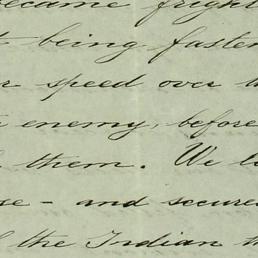 became fright
being fasten
speed over th
enemy, before
them. We l
se - and secured
the Indian th